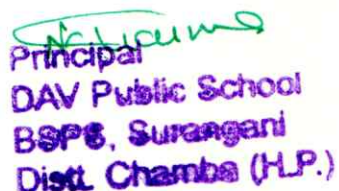 Principal
DAV Public School
BSPS, Surangani
Distt. Chamba (H.P.)